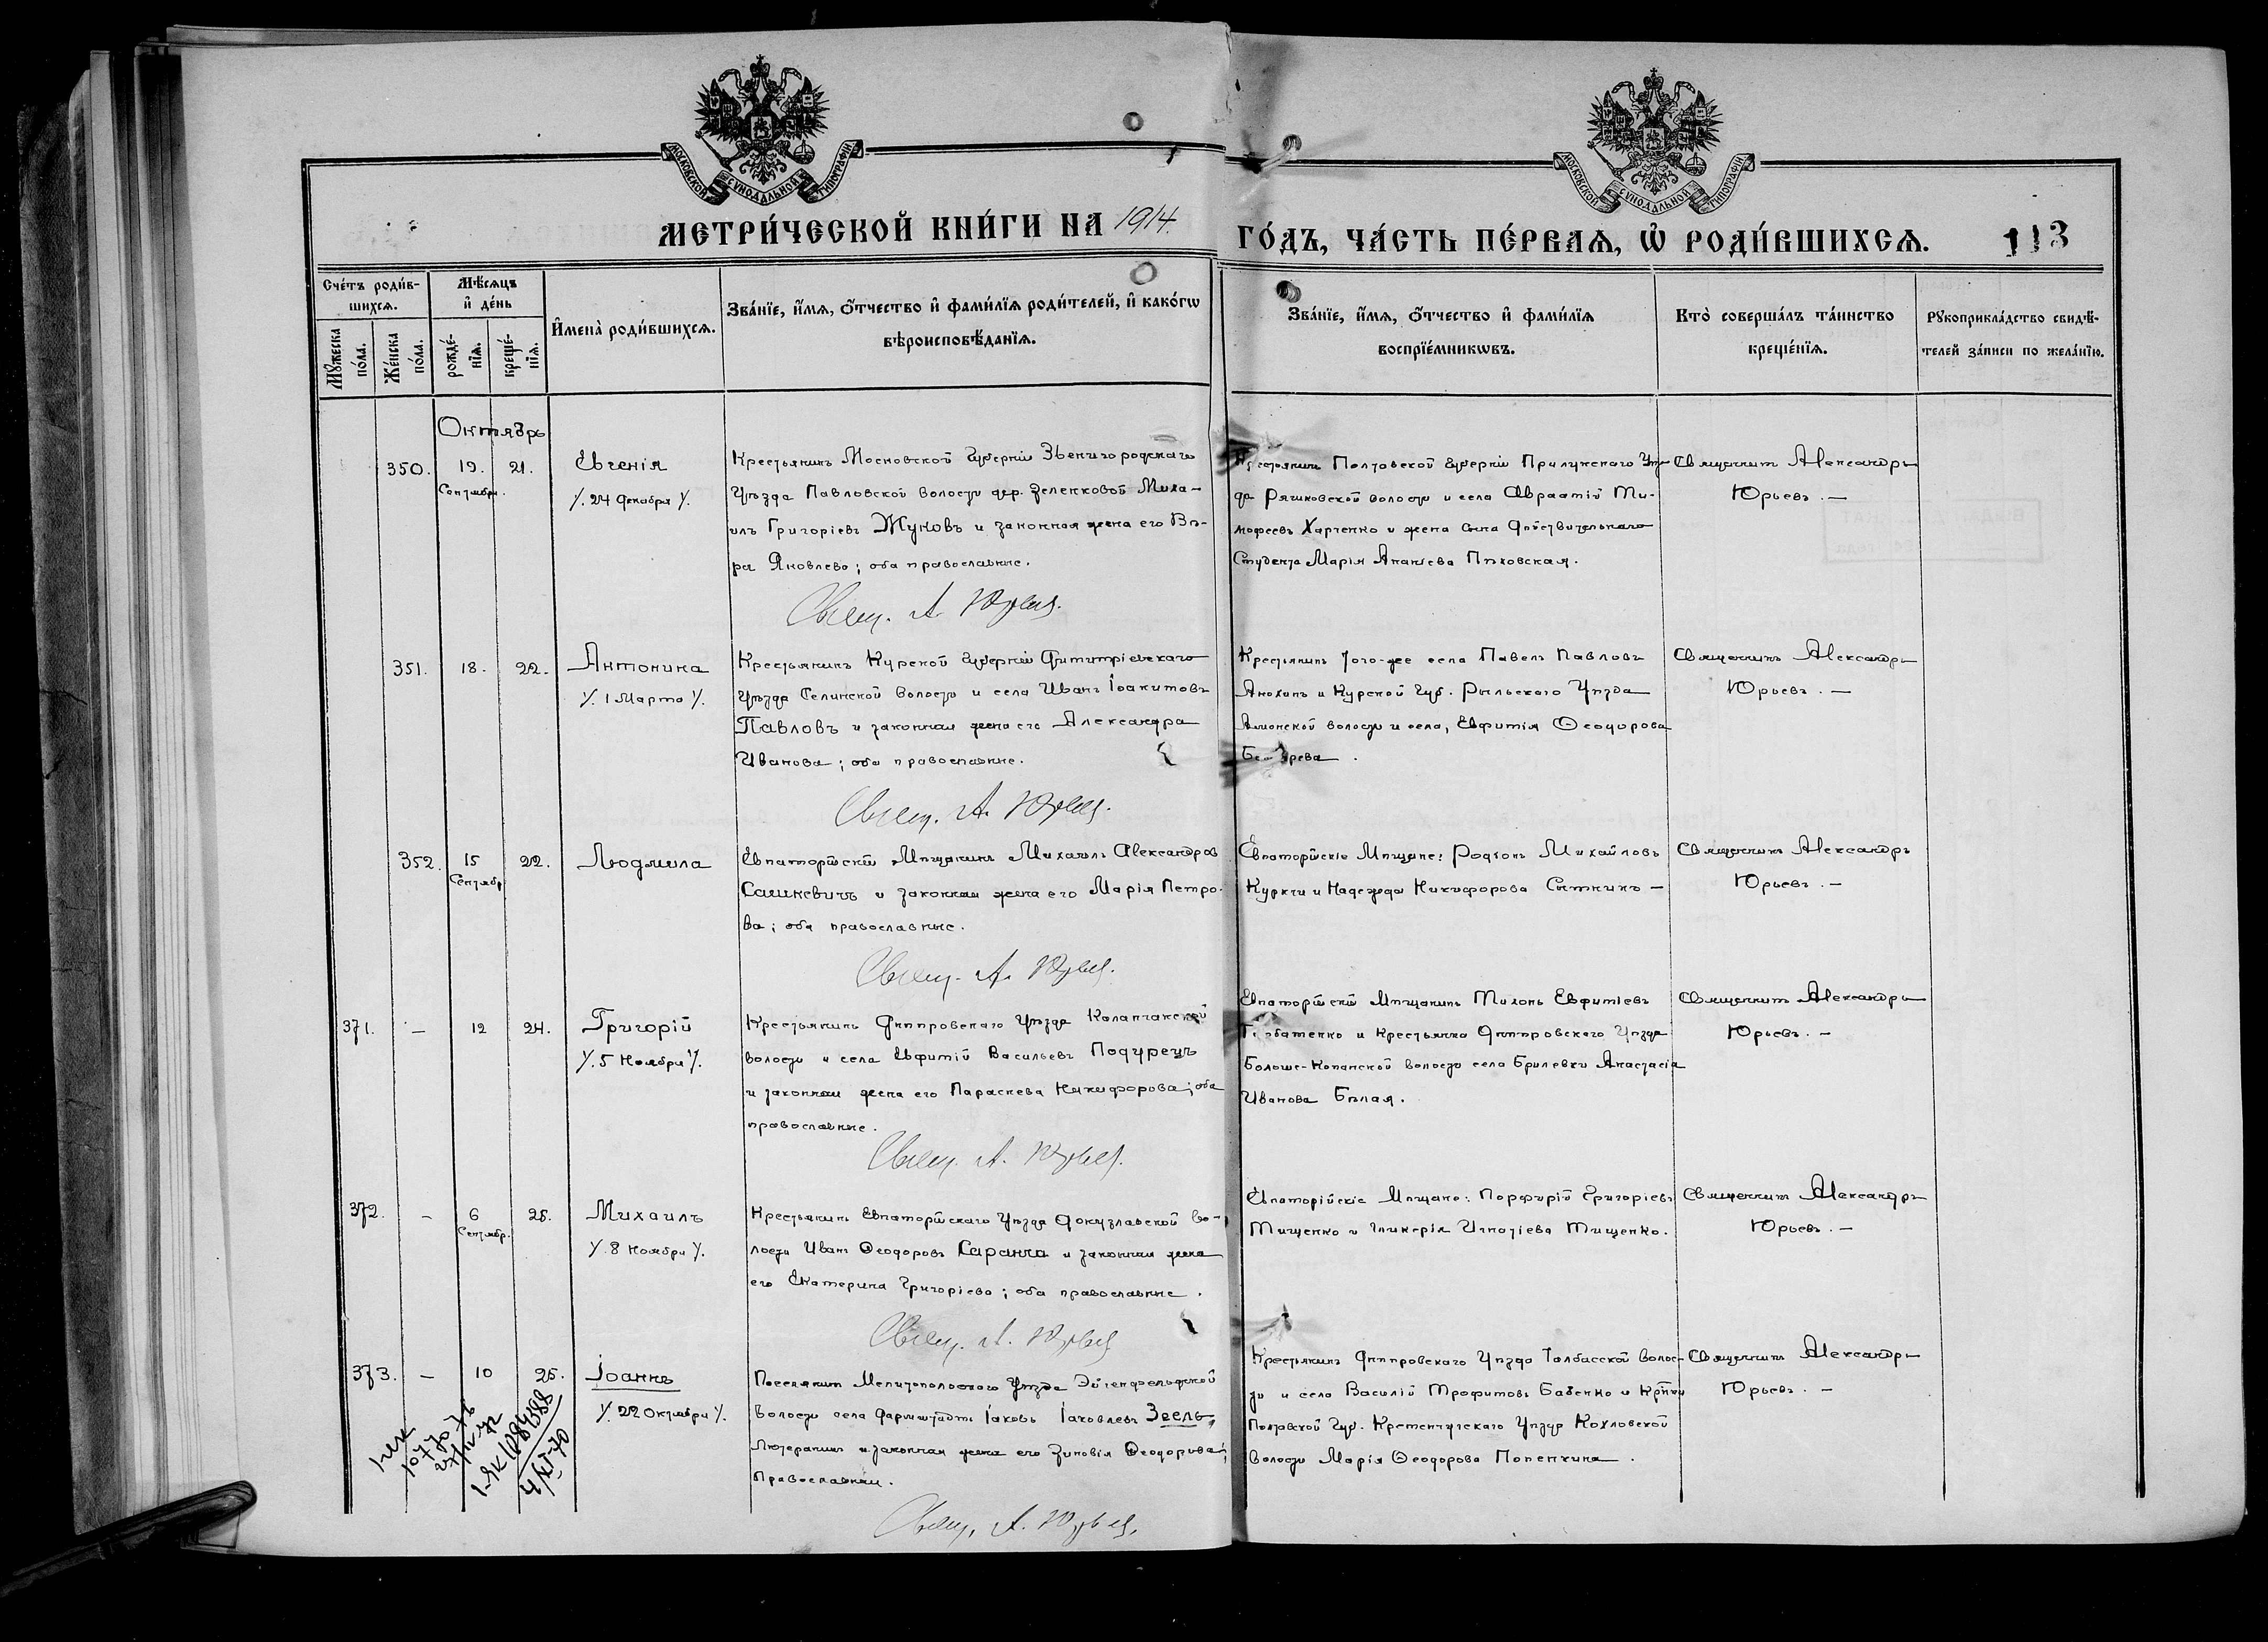 МОСКОВСКОЙ СѴНОДАЛЬНОЙ ТИПОГРАФІИ
МОСКОВСКОЙ СѴНОДАЛЬНОЙ ТИПОГРАФІИ
МЕТРИ́ЧЕСКОЙ КНИ́ГИ НА 1914.
ГО́ДЪ, ЧА́СТЬ ПЕ́РВАѦ, Ѡ҆ РОДИ́ВШИХСѦ.
113
Сче́тъ роди́в-
шихсѧ.
Мꙋ́жеска
по́ла.
Же́нска
по́ла.
Мѣ́сѧцъ
и҆ де́нь
рожде́-
нїѧ.
креще́-
нїѧ.
И҆мена̀ роди́вшихсѧ.
Зва́нїе, и҆́мѧ, ѻ҆́тчество и҆ фами́лїѧ роди́телей, и҆ како́гѡ
вѣроисповѣ́данїѧ.
Зва́нїе, и҆́мѧ, ѻ҆́тчество и҆ фами́лїѧ
воспрїе́мникѡвъ.
Кто̀ соверша́лъ та́инство
креще́нїѧ.
Рꙋкоприкла́дство свидѣ́-
телей за́писи по жела́нїю.
Октябрь
350.
19.
Сентября.
21.
Евгенія
/. 24 Декабря /.
Крестьянинъ Московской Губерніи Звенигородскаго
Уѣзда Павловской волости дер. Зеленковой Миха-
илъ Григоріевъ Жуковъ и законная жена его Вѣ-
ра Яковлева; оба православные.
Свящ. А. Юрьевъ.
Крестьянинъ Полтовской Губерніи Прилукскаго Уѣз-
да Ряшковской волости и села Авраатій Ти-
мофеевъ Харченко и жена сына Дѣйствительнаго
Студента Марія Ананіева Пѣховская.
Священникъ Александръ
Юрьевъ. —
351.
18.
22.
Антонина
/. 1 Марта /.
Крестьянинъ Курской Губерніи Димитріевскаго
Уѣзда Селинской волости и села Иванъ Іоакимовъ
Павловъ и законная жена его Александра
Иванова; оба православные.
Свящ. А. Юрьевъ.
Крестьянинъ того-же села Павелъ Павловъ
Анохинъ и Курской Губ. Рыльского Уѣзда
волости и села, Евфимія Ѳеодорова
Священникъ Александръ
Юрьевъ. —
352.
15
Сентябр
22.
Людмила
Евпаторійскій Мѣщанинъ Михаилъ Александров
Сашкевичъ и законная жена его Марія Петро-
ва; оба православные.
Свящ. А. Юрьевъ.
Евпаторійскіе Мѣщане: Родіонъ Михайловъ
Куркчи и Надежда Никифорова Сытникъ —
Священникъ Александръ
Юрьевъ. —
371.
—
12
24.
Григорій
/. 5 Ноября /.
Крестьянинъ Днѣпровскаго Уѣзда Каланчакской
волости и села Евфимій Васильевъ Подурецъ
и законная жена его Параскева Никифорова; оба
православные.
Свящ. А. Юрьевъ.
Евпаторійскій Мѣщанинъ Тихонъ Евфиміевъ
Горбатенко и Крестьянка Днѣпровскаго Уѣзда
Больше-Копанской волости села Брилевки Анастасія
Иванова Бѣлая.
Священникъ Александръ
Юрьевъ. —
372.
—
6
Сентябр.
25.
Михаилъ
/. 8 Ноября /.
Крестьянинъ Евпаторійскаго Уѣзда Донузлавской во-
лости Иванъ Ѳеодоровъ Саранча и законная жена
его Екатерина Григоріева; оба православные.
Свящ. А. Юрьевъ
Евпаторійскіе Мѣщане: Порфирій Григоріевъ
Тищенко и Гликерія Игнатіева Тищенко.
Священникъ Александръ
Юрьевъ. —
373.
—
10
25.
Іоаннъ
/. 22 Октября /.
1-ЯК 1084588
4/XI-70
Поселянинъ Мелитопольскаго Уѣзда Эйгенфельдской
волости села Дармштадтъ Іаковъ Іаковлевъ Зеель,
Лютеранинъ и законная жена его Зиновія Ѳеодорова;
Православная.
Свящ. А. Юрьевъ.
Крестьянинъ Днѣпровскаго Уѣзда Волос-
ти и села Василій Трофимовъ Бабенко и Кр-нки
Полтавской Губ. Кременчугскаго Уѣзда Кохловской
волости Марія Ѳеодорова Попенкина.
Священникъ Александръ
Юрьевъ. —